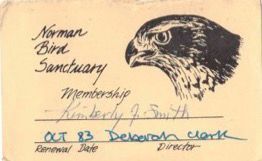 Norman
Bird
Sanctuary
Membership
Kimberly J. Smith
Oct 83 Deborah Clark
Renewal Date Director